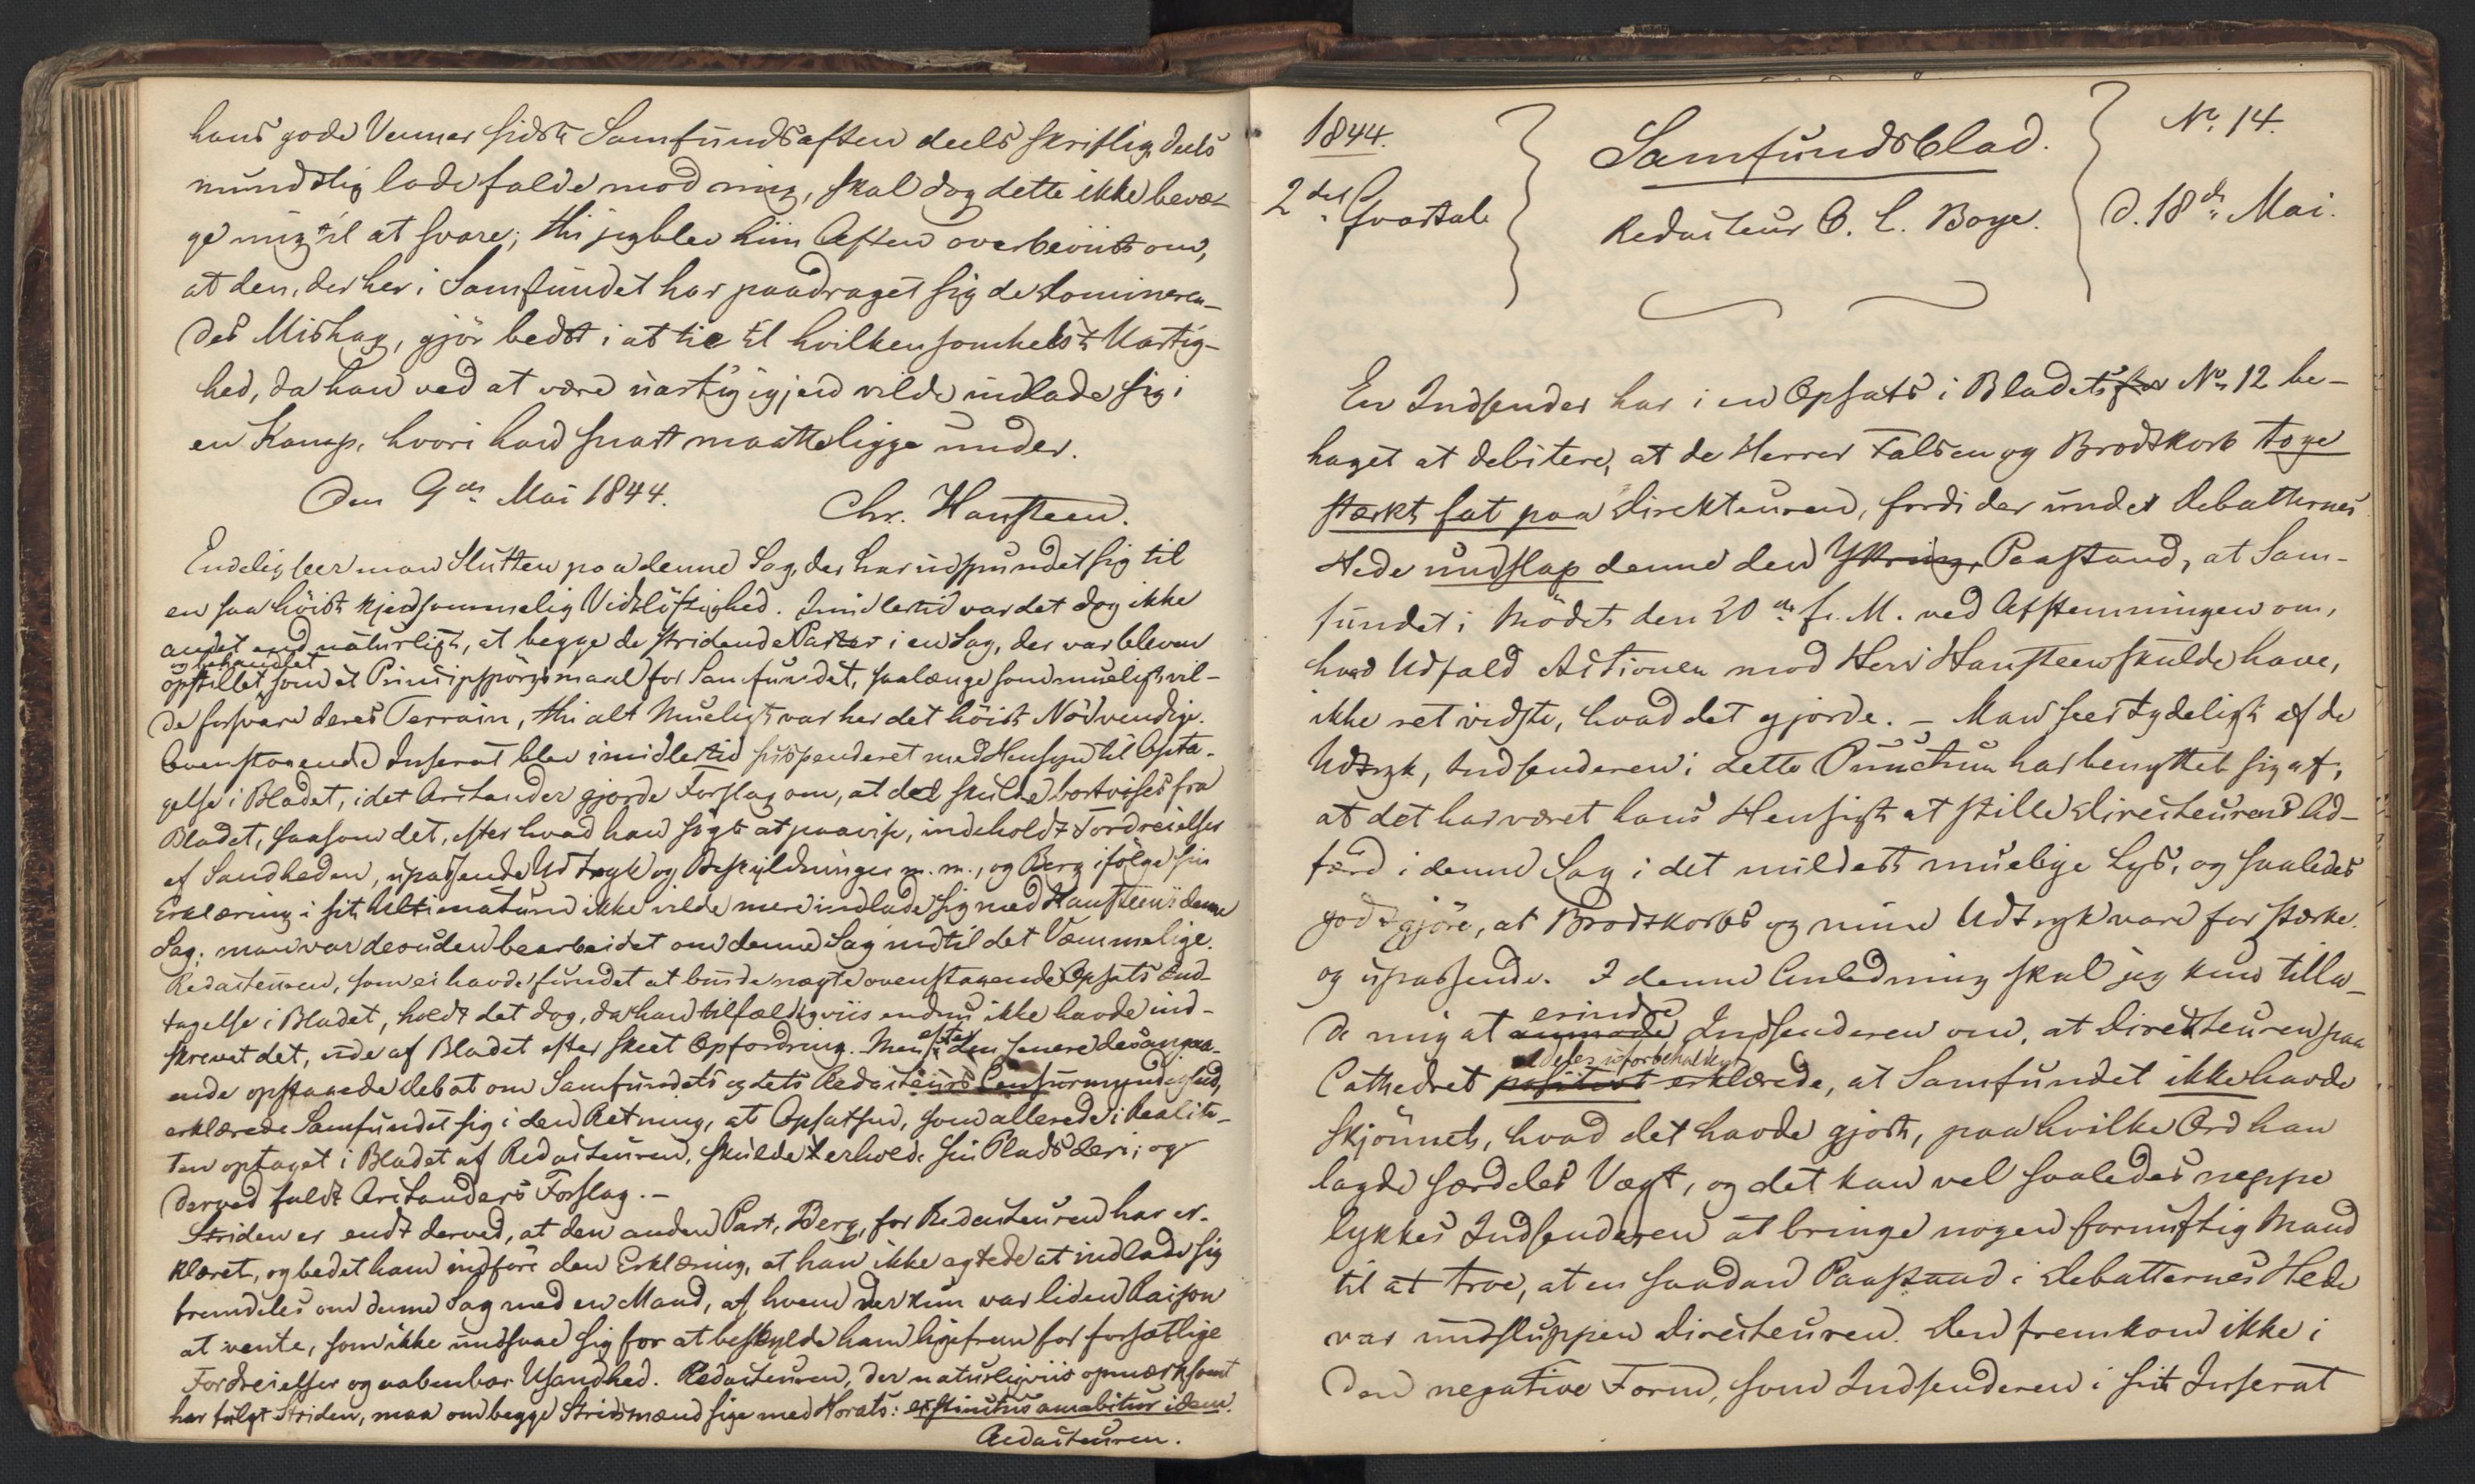 hans gode Venner sidste Samfundsaften deels skriftlig, deels
mundtlig lode falde mod mig, skal dog dette ikke bevæ-
ge mig til at svare; thi jeg blev hiin Aften overbeviist om,
at den, der her i Samfundet har paadraget sig de domineren-
des Mishag, gjör bedst i at tie til hvilkensomhelst Uartig-
hed, da han ved at være uartig igjen vilde indlade sig i
en Kamp, hvori han snart maatte ligge under.
Den 9de Mai 1844.
Chr. Hansteen.
Endelig seer man Slutten paa denne Sag, der har udspundet sig til
en saa höist kjedsommelig Vidtlöftighed. Imidlertid var det dog ikke
andet end naturligt, at begge de stridende Parter i en Sag, der var bleven
og behandlet
opstillet som et Principspörgsmaal for Samfundet, saalænge som mueligt vil-
de forsvare deres Terrain, thi alt Mueligt var her det höist Nödvendige.
Ovenstaaende Inserat blev imidlertid suspenderet med Hensyn til Opta-
gelse i Bladet, idet Arctander gjorde Forslag om, at det skulde bortvises fra
Bladet, saasom det, efter hvad han sögte at paavise, indeholdt Fordreielser
af Sandheden, upassende Udtryk og Beskyldninger m. m., og Berg ifölge sin
Erklæring i sit Ultimatum ikke vilde mere indlade sig med Hansteen i denne
Sag; man var desuden bearbeidet om denne Sag indtil det Væmmelige.
Redacteuren, som ei havde fundet at burde nægte ovenstaaende Opsats Ind-
tagelse i Bladet, holdt det dog, da han tilfældigviis endnu ikke havde ind-
skrevet det, ude af Bladet efter skeet Opfordring. Men
efter
den senere desangaa-
ende opstaaede Debat om Samfundets og dets Redacteurs Censurmyndighed,
erklærede Samfundet sig i den Retning, at Opsatsen, som allerede i Realite-
ten optaget i Bladet af Redacteuren, skulde erholde sin Plads deri; og
derved faldt Arctanders Forslag. –
Striden er endt derved, at den anden Part, Berg, for Redacteuren har er-
klæret, og bedet ham indföre den Erklæring, at han ikke agtede at indlade sig
fremdeles om denne Sag med en Mand, af hvem der kun var liden Raison
at vente, som ikke undsaae sig for at beskylde ham ligefrem for forsætlige
Fordreielser og aabenbar Usandhed. Redacteuren, der naturligviis opmærksomt
har fulgt Striden, maa om begge Stridsmænd sige med Horats: exstinctus amabitur idem.
Redacteuren.
1844.
2det Qvartal.
Samfundsblad.
Redacteur C. L. Boye.
No 14.
d. 18de Mai.
En Indsender har i en Opsats i Bladets No 12 be-
haget at debitere, at de Herrer Falsen og Brodtkorb toge
stærkt fat paa Direkteuren, fordi der under Debatternes
Hede undslap denne den Yttring, Paastand, at Sam-
fundet i Mödet den 20de f. M. ved Afstemningen om,
hvad Udfald Actionen mod Herr Hansteen skulde have,
ikke ret vidste, hvad det gjorde. – Man seer tydeligt af de
Udtryk, Indsenderen i dette Punctum har benyttet sig af,
at det har været hans Hensigt at stille Directeurens Ad-
færd i denne Sag i det mildest muelige Lys, og saaledes
godtgjöre, at Brodtkorbs og mine Udtryk vare for stærke
og upassende. I denne Anledning skal jeg kun tilla-
erindre
de mig at anmode Indsenderen om, at Direkteuren paa
aldeles uforbeholdent
Cathedret positivt erklærede, at Samfundet ikke havde
skjönnet, hvad det havde gjort, paa hvilke Ord han
lagde særdeles Vægt, og det kan vel saaledes neppe
lykkes Indsenderen at bringe nogen fornuftig Mand
til at troe, at en saadan Paastand i Debatternes Hede
var undsluppen Directeuren. Den fremkom ikke i
den negative Form, som Indsenderen i sit Inserat